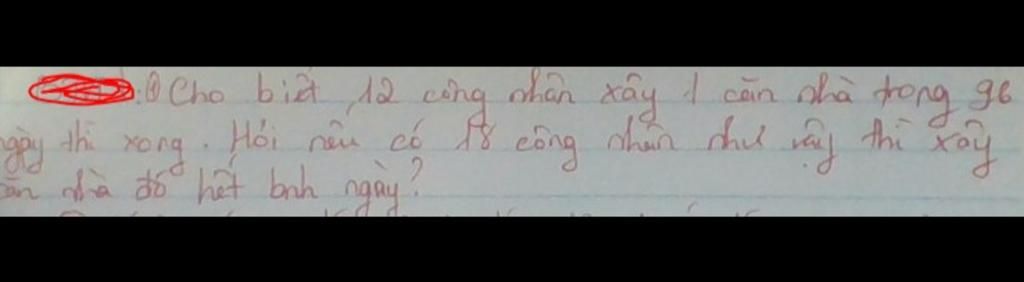 ① Cho biết 12 công nhân xây 1 căn nhà trong 96
ngày thì xong. Hỏi nếu có 18 công nhân như vậy thì xây
căn nhà đó hết bnh ngày?